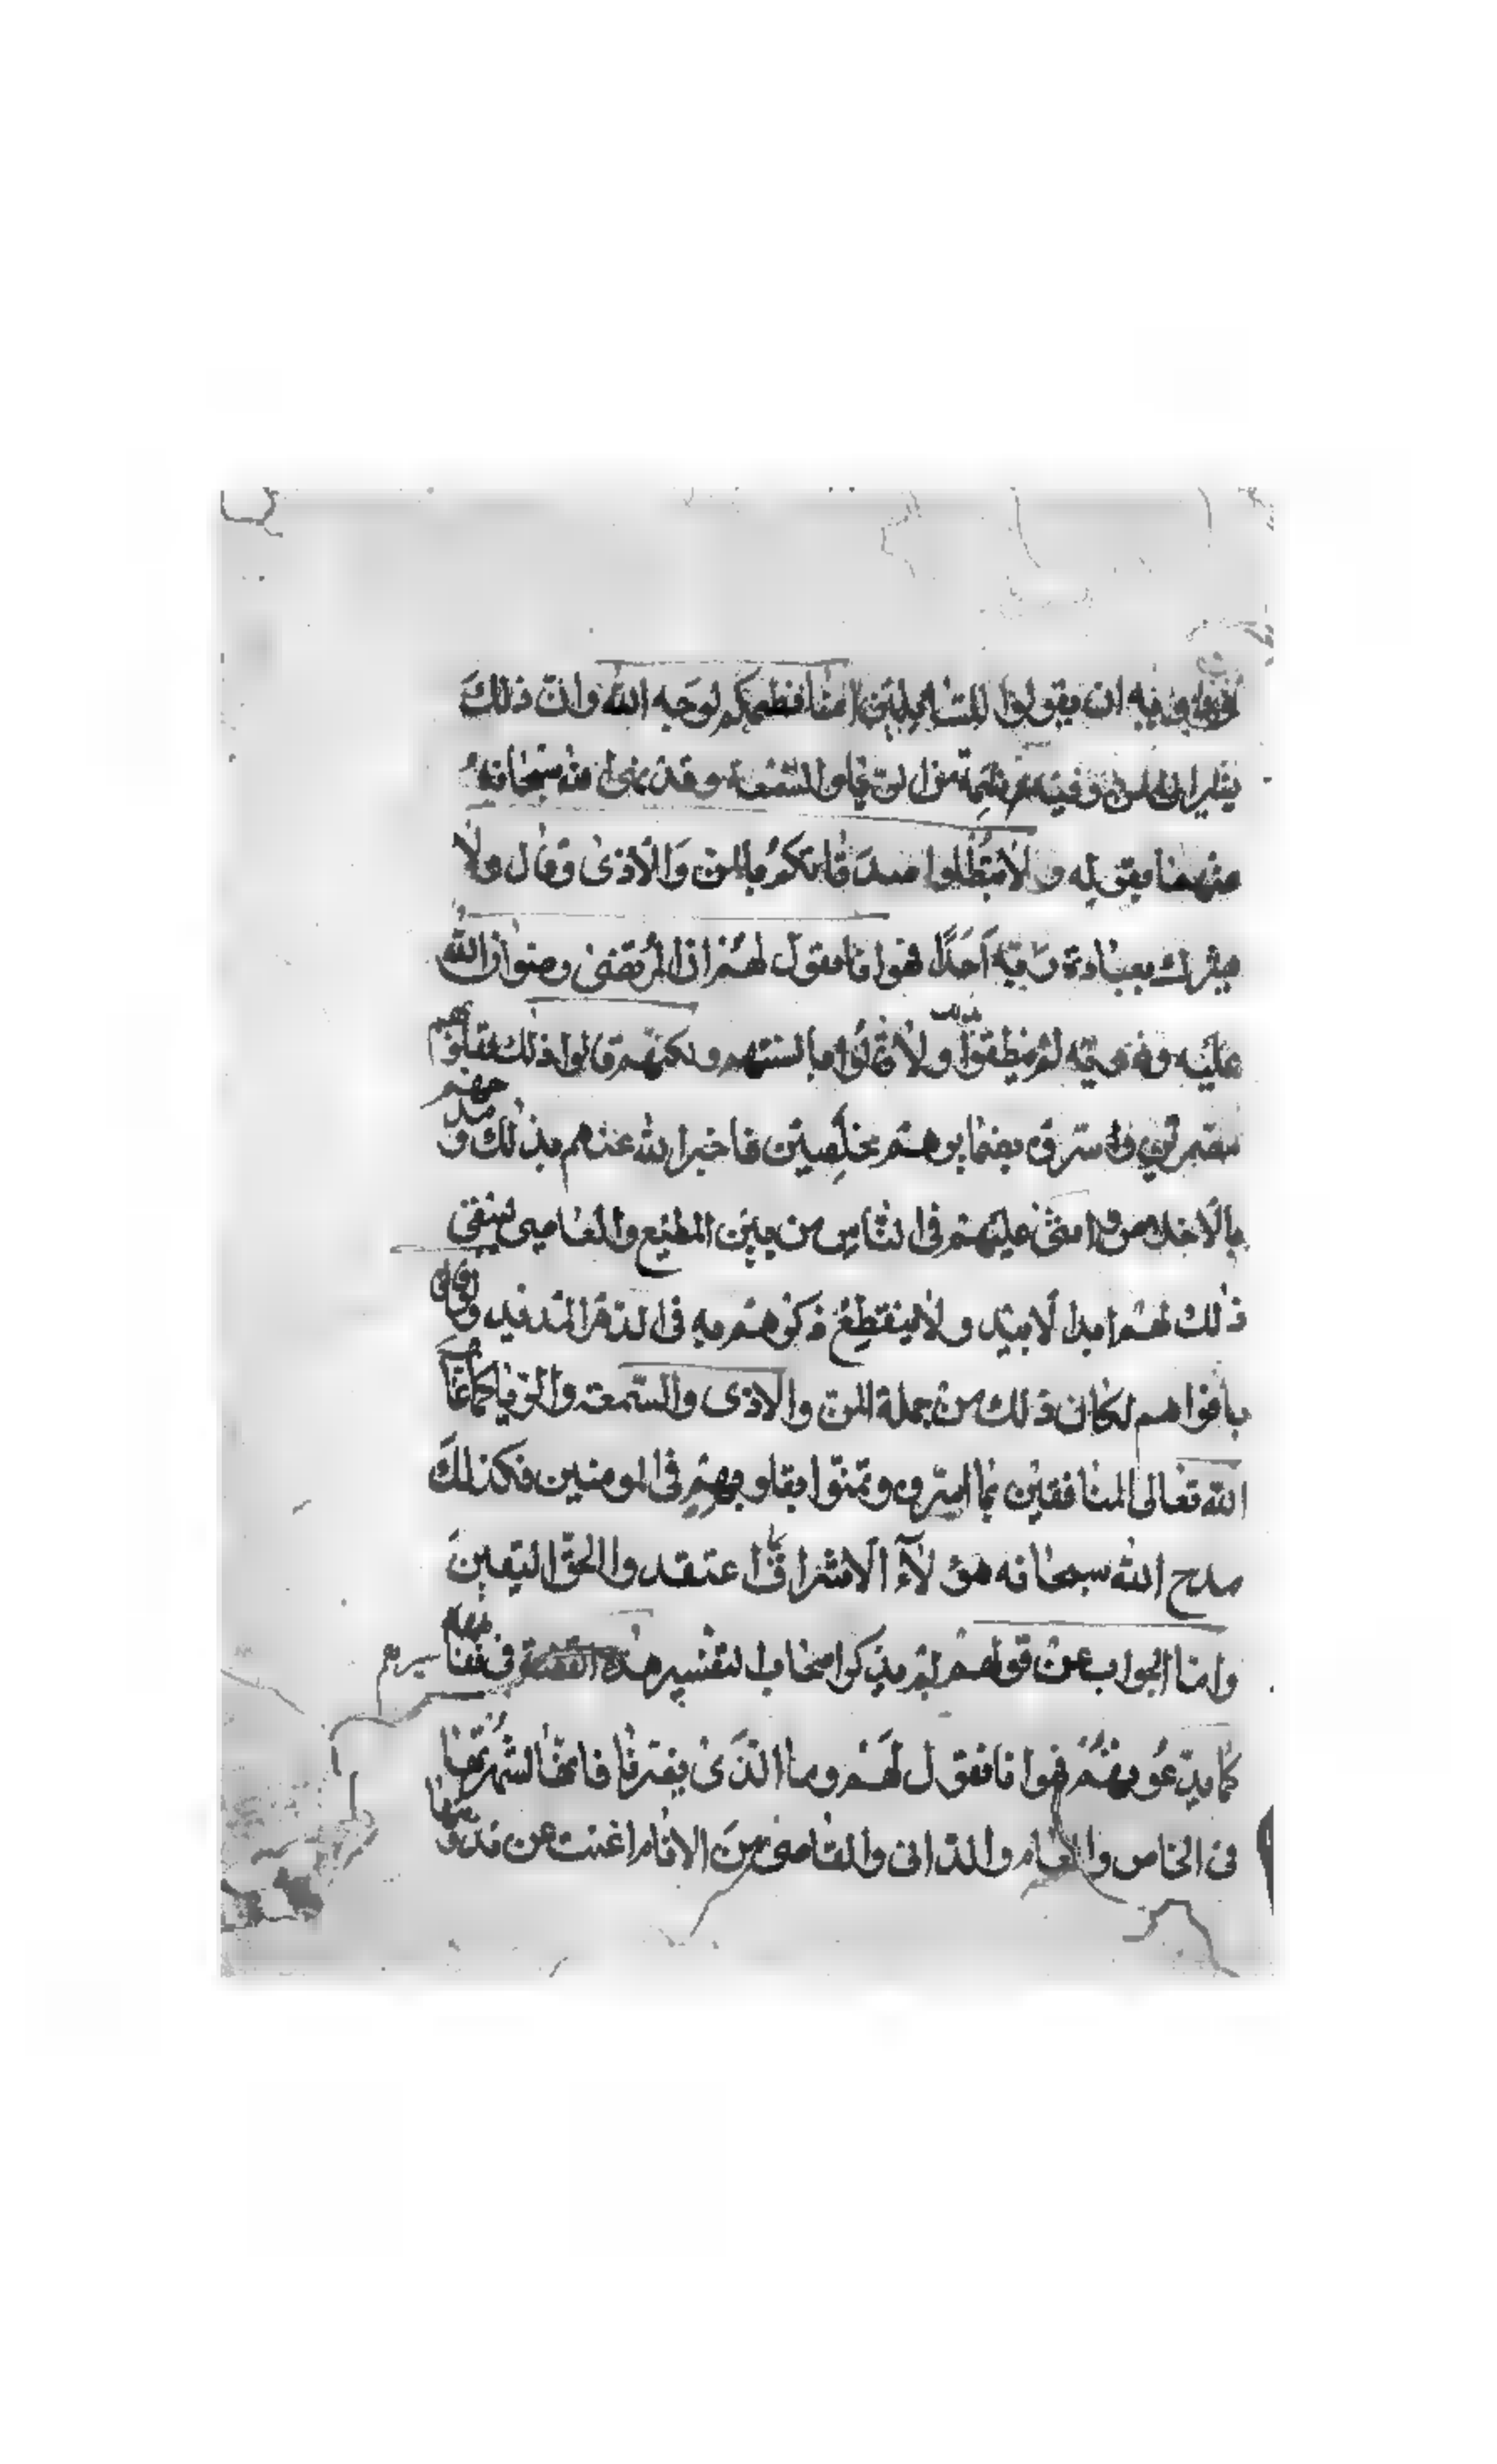 ان يقولوا للمسلمين انما نطعمكم لوجه الله وان ذلك
من الريا والسمعة وقد نهى الله سبحانه
عنهما بقوله ولا تبطلوا صدقاتكم بالمن والاذى وقال ولا
يشرك بعبادة ربه احدا فهو انا نقول لهم ان المرتضى رضوان الله
عليه وذريته لم ينطقوا ولا قالوا بالسنتهم ولكنهم قالوا ذلك بقلوبهم
وهم مخلصين فاخبر الله عنهم بذلك ومدحهم
بالاخلاص واثنى عليهم في الناس من بين المطيع والعاصي ليبقى
ذلك لهم ابد الابيد ولا ينقطع ذكرهم به في الدهر المتدفيد
بافواههم لكان ذلك من جملة المن والاذى والسمعة والريا كما عاب
الله تعالى المنافقين بما اسروه وتمنوا بقلوبهم في المومنين فكذلك
مدح الله سبحانه هؤلاء الاشراف بما اعتقدوا الحق اليقين
واما الجواب عن قولهم لم يذكر اصحاب التفسير هذه القصة في تفاسيرهم
كما يدعو بهم فهو انا نقول لهم وما الذي يضرنا فانها لشهرتها
في الخاص والعام والداني والقاصي من الانام اغنت عن تدوينها